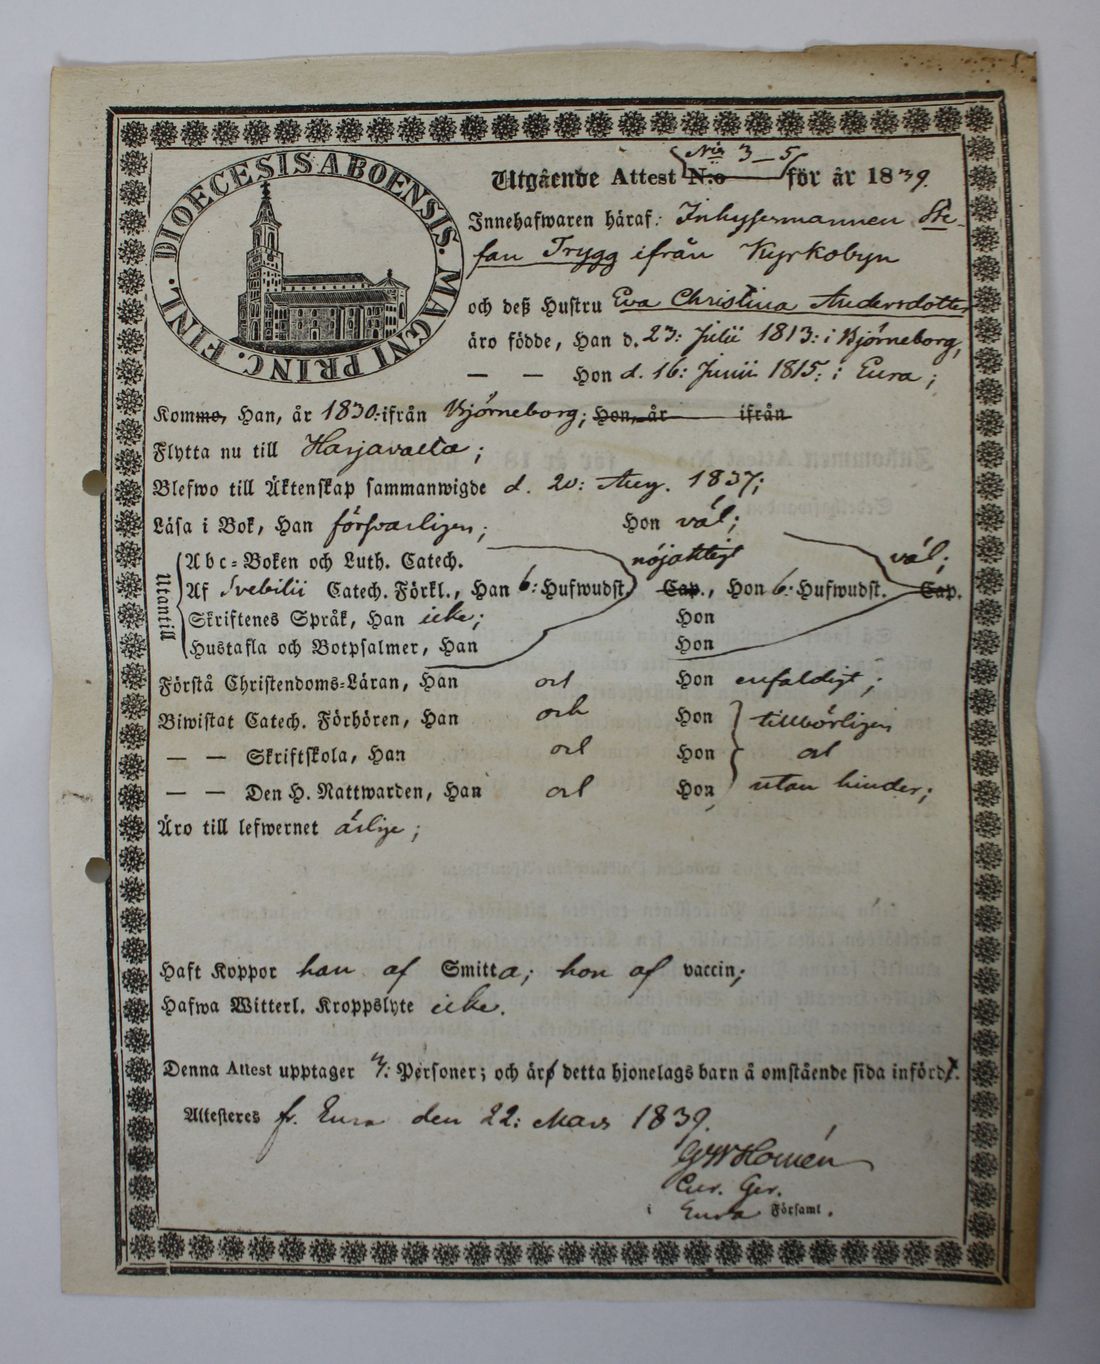 DIOECESIS ABOENSIS. MAGNI PRINC. FINL.
N:is 3_5
Utgående Attest N:o för år 1839.
Innehafwaren häraf: Inhysesmannen Ste-
fan Trygg ifrån Kyrkobyn
och deß Hustru Eva Christina Andersdotter
äro födde, Han d. 23: Julii 1813: i Bjørneborg,
— — Hon d. 16: Junii 1815: i Eura;
Komme, Han, år 1830: ifrån Bjørneborg; Hon, år ifrån
Flytta nu till Harjavalta;
Blefwo till Äktenskap sammanwigde d. 20: Aug. 1837;
Läsa i Bok, Han försvarligen; Hon väl;
Utantill
Abc-Boken och Luth. Catech. nöjaktigt väl;
Af Svebilii Catech. Förkl., Han 6: Hufwudst. Cap., Hon 6: Hufwudst. Cap.
Skriftenes Språk, Han icke; Hon
Hustafla och Botpsalmer, Han Hon
Förstå Christendoms-Läran, Han och Hon enfaldigt;
Biwistat Catech. Förhören, Han och Hon tillbörligen
— — Skriftskola, Han och Hon och
— — Den H. Nattwarden, Han och Hon utan hinder;
Äro till lefwernet ärlige;
Haft Koppor han af Smitta; hon af vaccin;
Hafwa Witterl. Kroppslyte icke.
Denna Attest upptager 3: Personer; och är detta hjonelags barn å omstående sida infördt.
Attesteres fr. Eura den 22: Mars 1839.
GW Homén
Cur. Ger.
i Eura Församl.